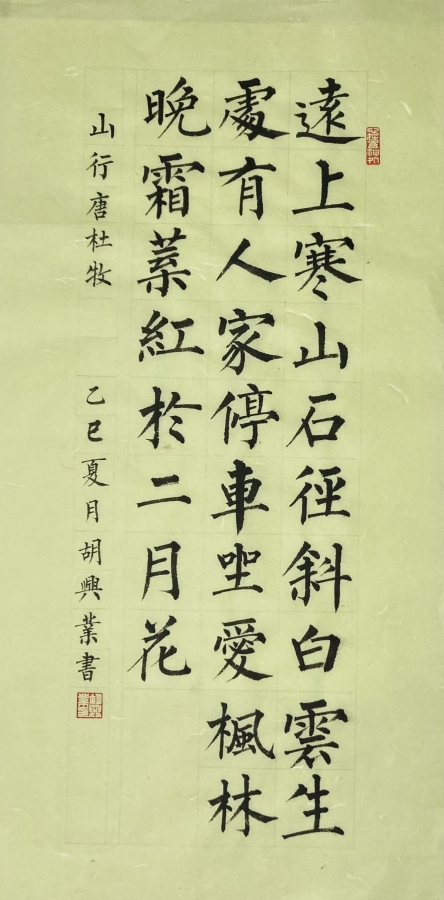 遠上寒山石徑斜白雲生
處有人家停車坐愛楓林
晚霜葉紅於二月花
山行唐杜牧
乙巳夏月胡興業書